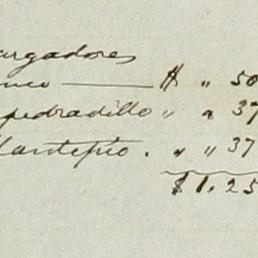 urgadores
nco — $ " 50
pedradillo " " 37
lantepío . " " 37
$ 1.25